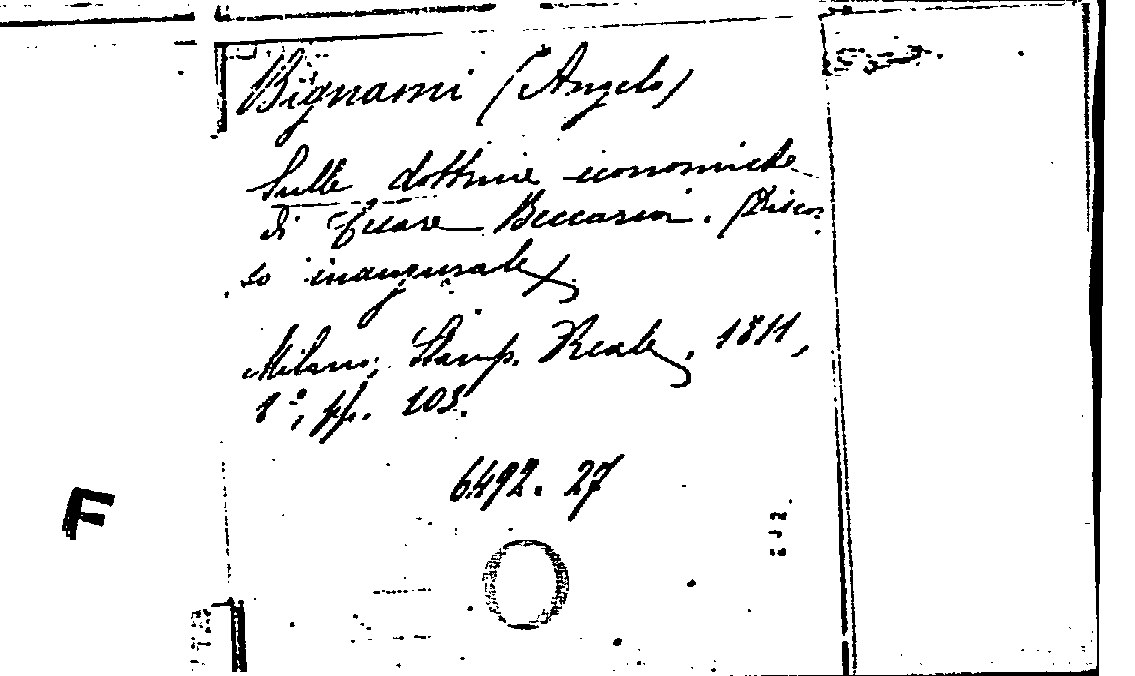 Bignami (Angelo)
Sulle dottrine economiche
di Cesare Beccaria. (Discor
so inaugurale)
Milano, Stamp. Reale, 1811,
8°, pp. 103.
6492. 27
F